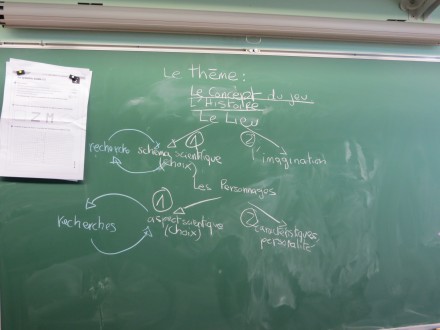 Le thème:
Le Concept du jeu
L'Histoire
Le Lieu
① ②
recherche schéma scientifique l'imagination
(choix)
Les Personnages
① ②
recherches aspect scientifique caractéristiques
(choix) personalité
ZM